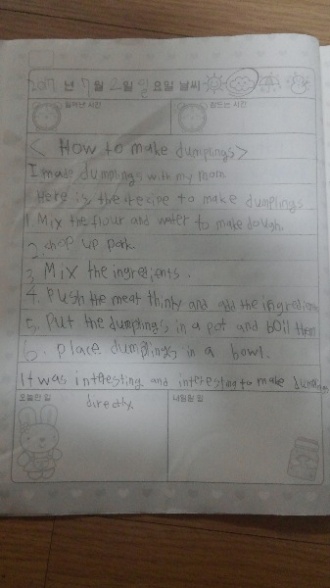 2017 년 7 월 2 일 일 요일 날씨
일어난 시간 잠드는 시간
< How to make dumplings >
I made dumplings with my mom.
Here is the recipe to make dumplings
1. Mix the flour and water to make dough.
2. chop up pork.
3. Mix the ingredients.
4. Push the meat thinly and add the ingredients
5. Put the dumplings in a pot and boil them
6. place dumplings in a bowl.
It was interesting and interesting to make dumplings
directly
오늘한 일 내일할 일